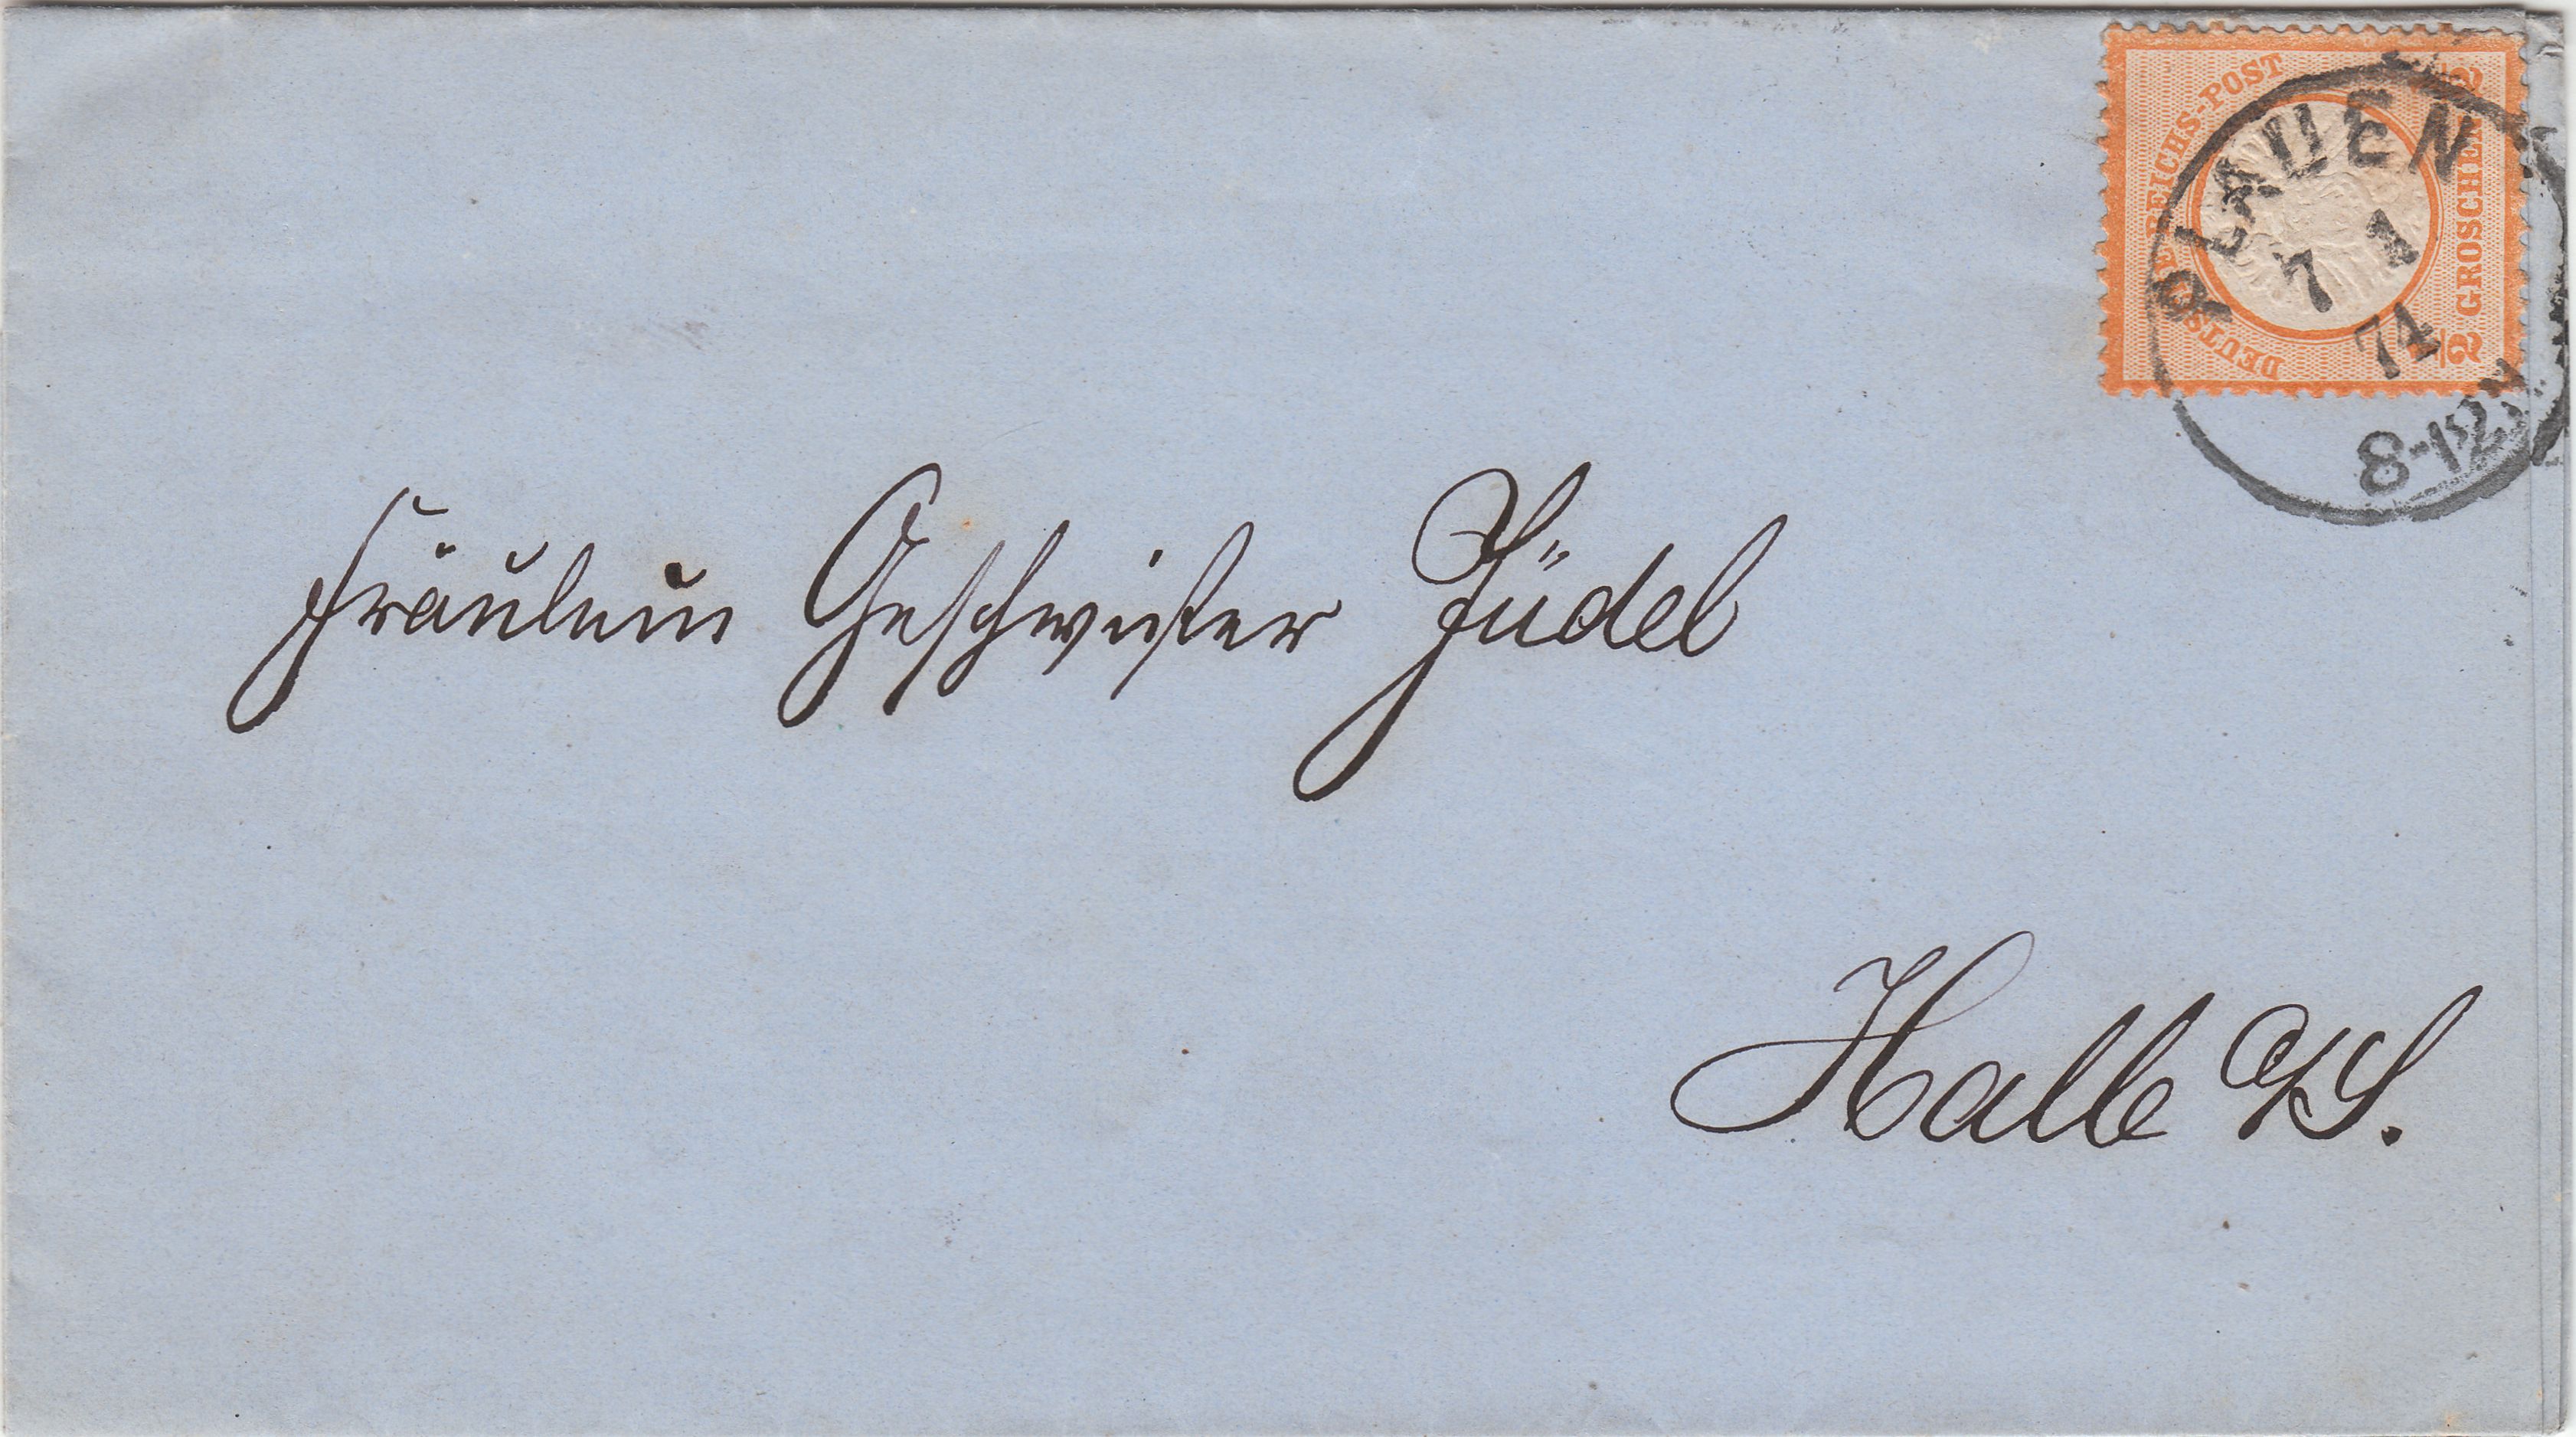 DEUTSCHE REICHS-POST
1/2 GROSCHEN 1/2
PLAUEN
7 1
74
8-12 N
Fräulein Geschwister Jüdel
Halle a/S.